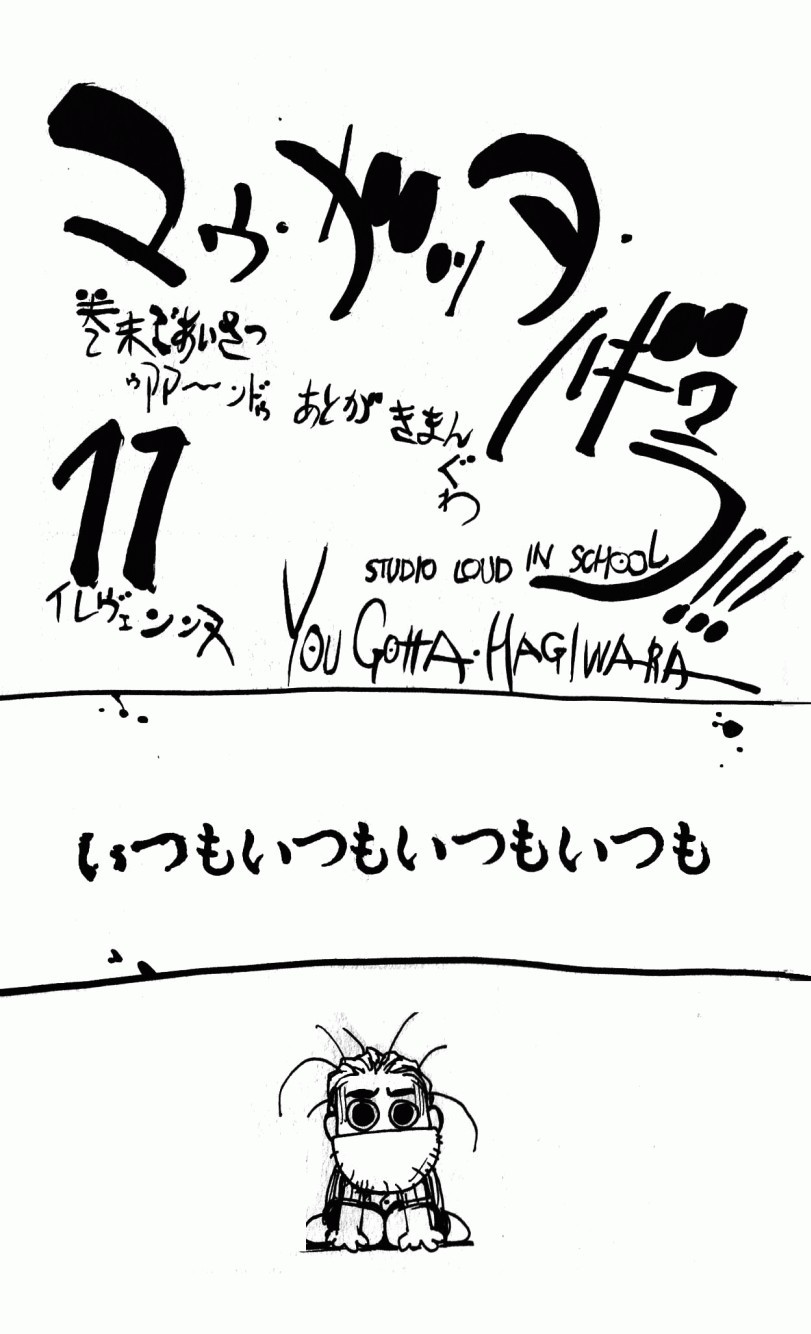 マゥ・ガッデ・
バギラ!!!
巻末ごあいさつ
ゥアア〜ンドゥ あとがきまんぐわ
11
イレヴェンンヌ
STUDIO LOUD IN SCHOOL
YOU GOTTA・HAGIWARA
いつもいつもいつもいつも